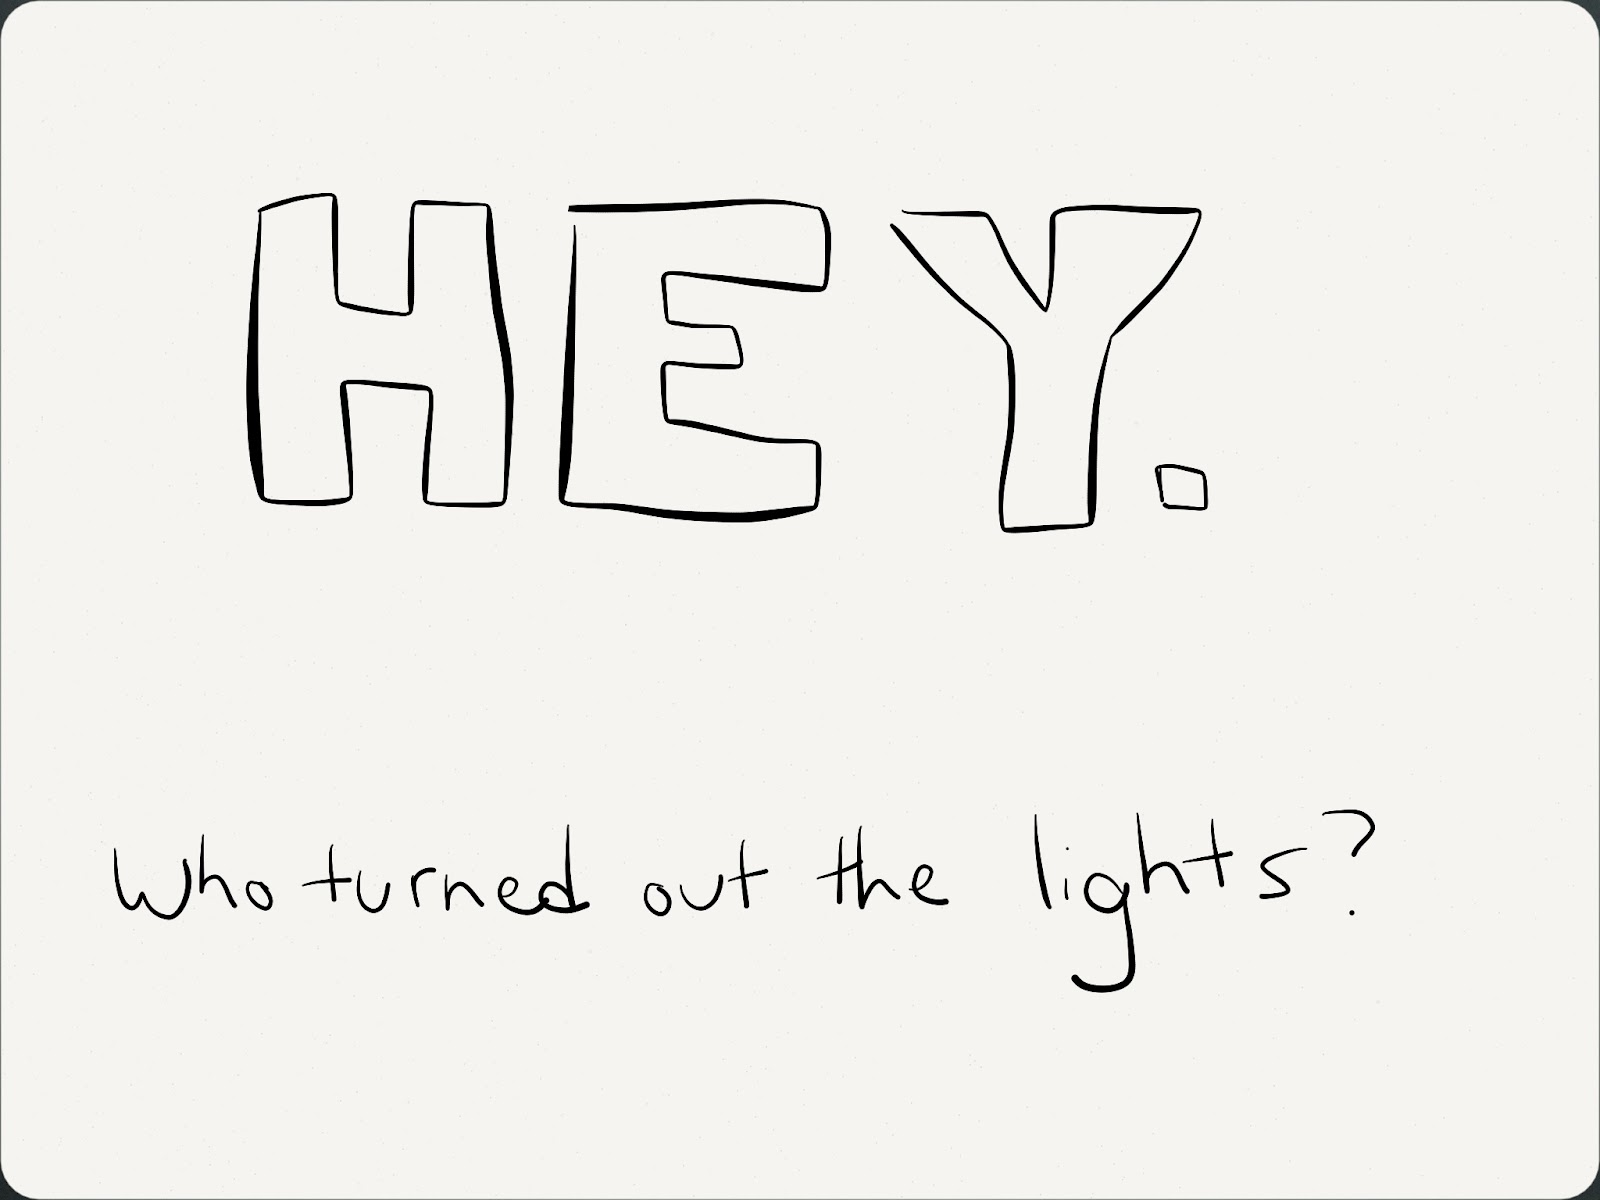 HEY.
Who turned out the lights?